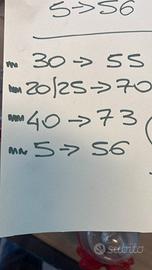 5→56
30→55
20/25→70
40→73
5→56
subito